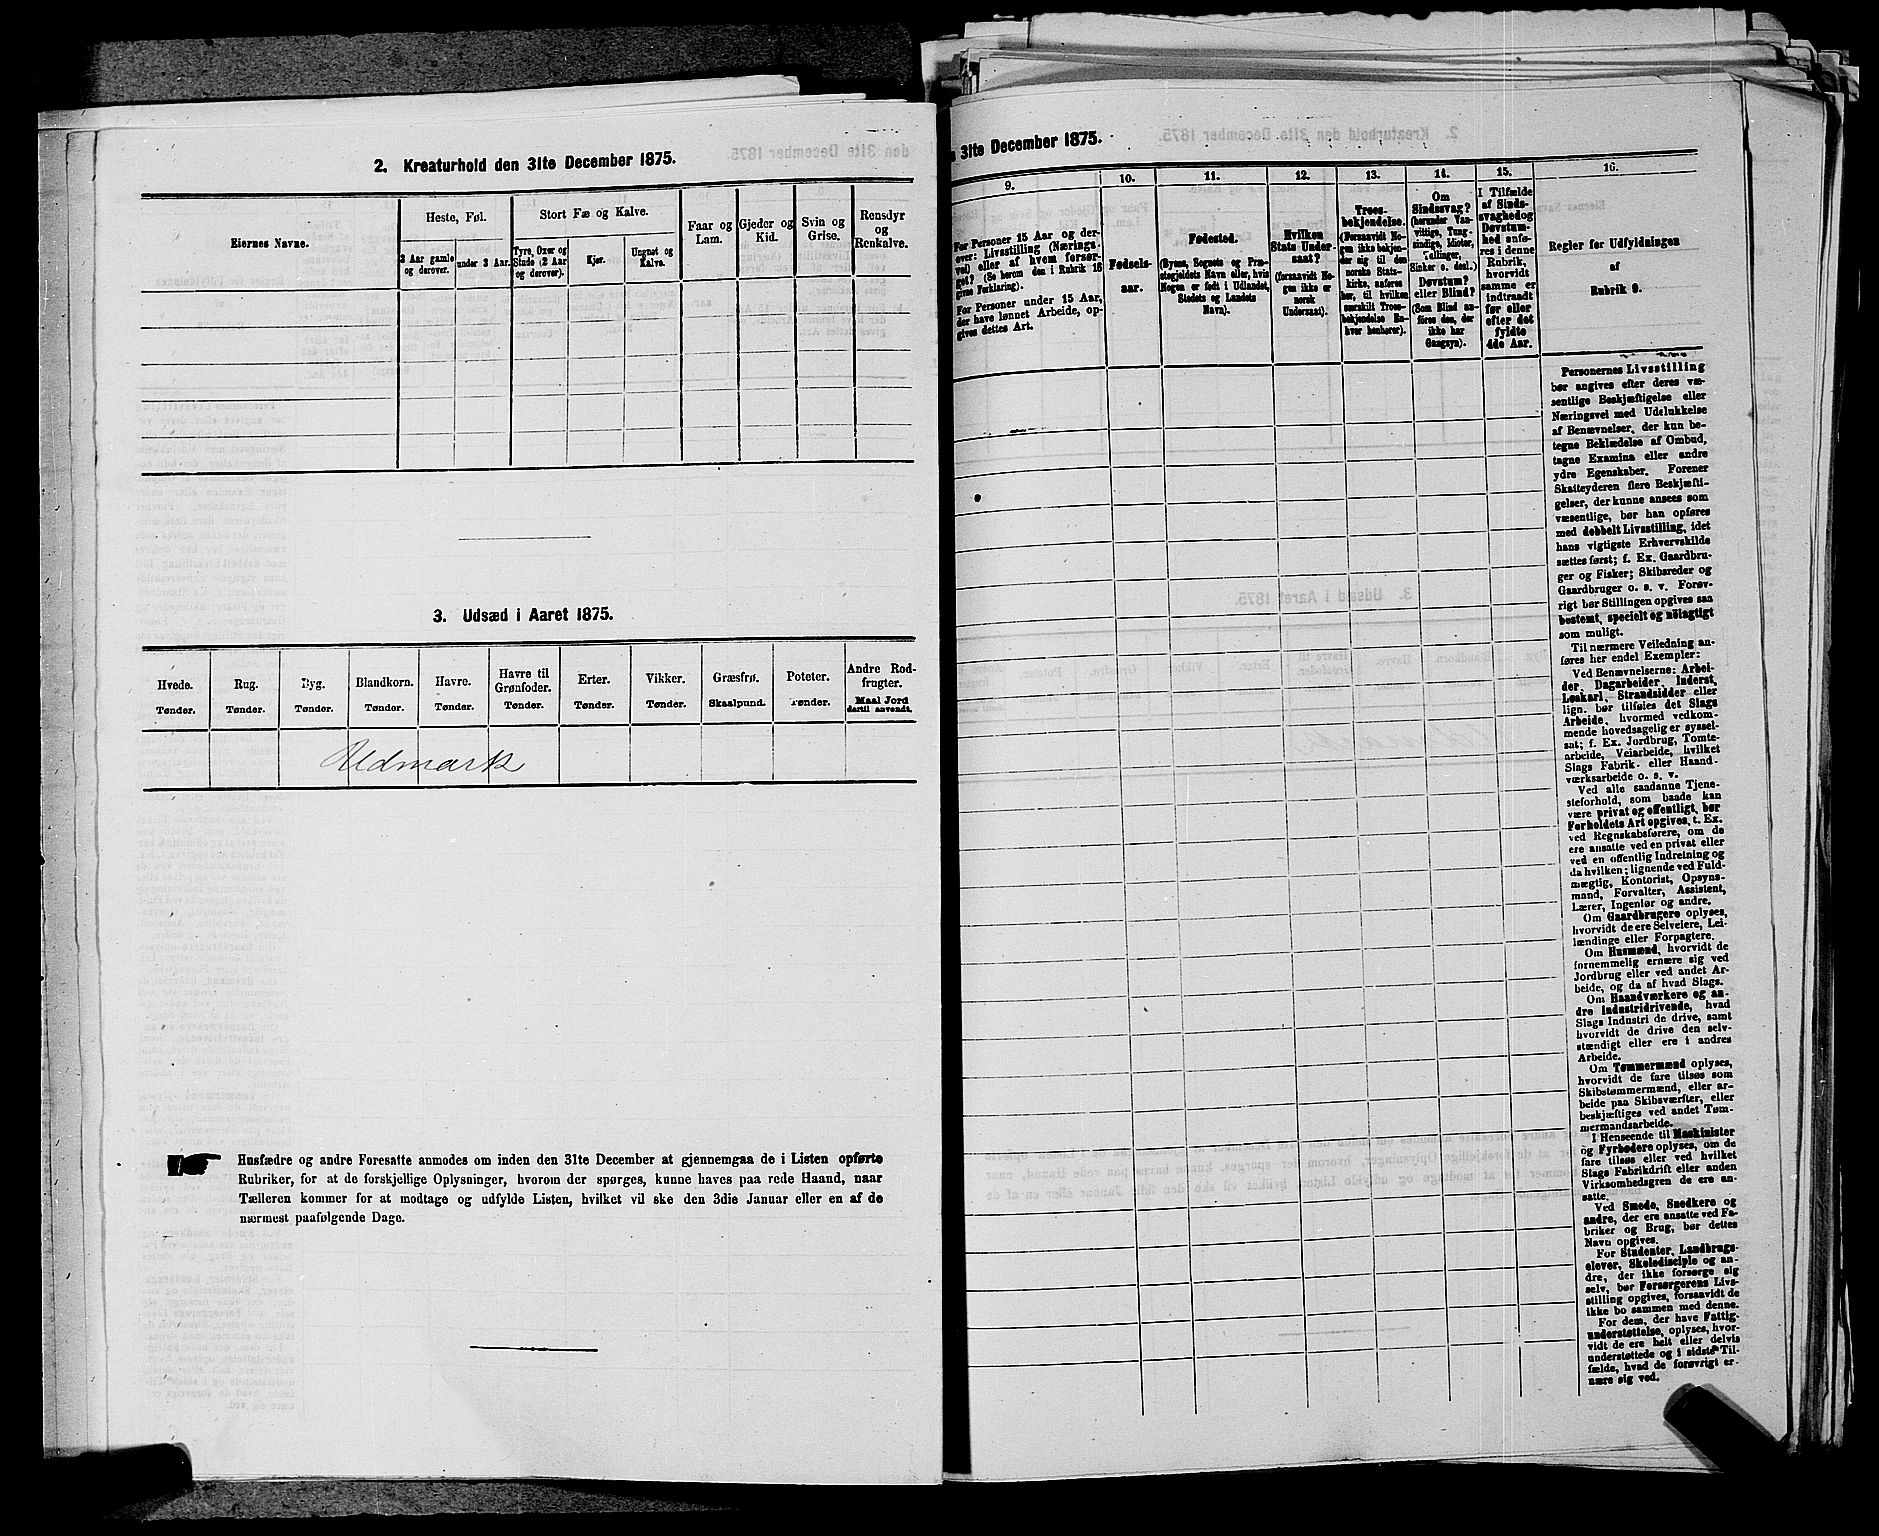 2. Kreaturhold den 31te December 1875.
Eiernes Navne.
Heste, Føl.
3 Aar gamle og derover.
under 3 Aar.
Stort Fæ og Kalve.
Tyre, Oxer og Stude (2 Aar og derover).
Kjør.
Ungnøt og Kalve.
Faar og Lam.
Gjeder og Kid.
Svin og Grise.
Rensdyr og Renkalve.
3. Udsæd i Aaret 1875.
Hvede. Tønder.
Rug. Tønder.
Byg. Tønder.
Blandkorn. Tønder.
Havre. Tønder.
Havre til Grønfoder. Tønder.
Erter. Tønder.
Vikker. Tønder.
Græsfrø. Skaalpund.
Poteter. Tønder.
Andre Rodfrugter. Maal Jord dertil anvendt.
Udmark
Husfædre og andre Foresatte anmodes om inden den 31te December at gjennemgaa de i Listen opførte
Rubriker, for at de forskjellige Oplysninger, hvorom der spørges, kunne haves paa rede Haand, naar
Tælleren kommer for at modtage og udfylde Listen, hvilket vil ske den 3die Januar eller en af de
nærmest paafølgende Dage.
31te December 1875.
9.
For Personer 15 Aar og der-
over: Livsstilling (Nærings-
vei) eller af hvem forsør-
get? (Se herom den i Rubrik 16
givne Forklaring).
For Personer under 15 Aar,
der have lønnet Arbeide, op-
gives dettes Art.
10.
Fødsels-
aar.
11.
Fødested.
(Byens, Sognets og Præ-
stegjeldets Navn eller, hvis
Nogen er født i Udlandet,
Stedets og Landets
Navn).
12.
Hvilken
Stats Under-
saat?
(forsaavidt No-
gen ikke er
norsk
Undersaat).
13.
Troes-
bekjendelse.
(Forsaavidt No-
gen ikke bekjen-
der sig til den
norske Stats-
kirke, anføres
her, til hvilken
særskilt Troes-
bekjendelse En-
hver henhører).
14.
Om
Sindssvag?
(herunder Van-
vittige, Tung-
sindige, Idioter,
Tullinger,
Sinker o. desl.)
Døvstum?
eller Blind?
(Som Blind an-
føres den, der
ikke har
Gangsyn).
15.
I Tilfælde
af Sinds-
svaghed og
Døvstum-
hed anfø-
res i denne
Rubrik,
hvorvidt
samme er
indtraadt
før eller
efter det
fyldte
4de Aar.
16.
Regler for Udfyldningen
af
Rubrik 9.
Personernes Livsstilling
bør angives efter deres væ-
sentlige Beskjæftigelse eller
Næringsvei med Udelukkelse
af Benævnelser, der kun be-
tegne Beklædelse af Ombud,
tagne Examina eller andre
ydre Egenskaber. Forener
Skatteyderen flere Beskjæfti-
gelser, der kunne ansees som
væsentlige, bør han opføres
med dobbelt Livsstilling, idet
hans vigtigste Erhvervskilde
sættes først; f. Ex. Gaardbru-
ger og Fisker; Skibsreder og
Gaardbruger o. s. v. Forøv-
rigt bør Stillingen opgives saa
bestemt, specielt og nøiagtigt
som muligt.
Til nærmere Veiledning an-
føres her endel Exempler:
Ved Benævnelserne: Arbei-
der, Dagarbeider, Inderst,
Løskarl, Strandsidder eller
lign. bør tilføies det Slags
Arbeide, hvormed vedkom-
mende hovedsagelig er syssel-
sat; f. Ex. Jordbrug, Tomte-
arbeide, Veiarbeide, hvilket
Slags Fabrik- eller Haand-
værksarbeide o. s. v.
Ved alle saadanne Tjene-
steforhold, som baade kan
være privat og offentligt, bør
Forholdets Art opgives, t. Ex.
ved Regnskabsførere, om de
ere ansatte ved en privat eller
ved en offentlig Indretning og
da hvilken; lignende ved Fuld-
mægtig, Kontorist, Opsyns-
mand, Forvalter, Assistent,
Lærer, Ingeniør og andre.
Om Gaardbrugere oplyses,
hvorvidt de ere Selveiere, Lei-
lændinge eller Forpagtere.
Om Husmænd, hvorvidt de
fornemmelig ernære sig ved
Jordbrug eller ved andet Ar-
beide, og da af hvad Slags.
Om Haandværkere og an-
dre Industridrivende, hvad
Slags Industri de drive, samt
hvorvidt de drive den selv-
stændigt eller ere i andres
Arbeide.
Om Tømmermænd oplyses,
hvorvidt de fare tilsøs som
Skibstømmermænd, eller ar-
beide paa Skibsværfter, eller
beskjæftiges ved andet Tøm-
mermandsarbeide.
I Henseende til Maskinister
og Fyrbødere oplyses, om de
fare tilsøs eller ved hvilket
Slags Fabrikdrift eller anden
Virksomhedsgren de ere an-
satte.
Ved Smede, Snedkere og
andre, der ere ansatte ved Fa-
briker og Brug, bør dettes
Navn opgives.
For Studenter, Landbrugs-
elever, Skoledisciple og an-
dre, der ikke forsørge sig
selv, bør Forsørgerens Livs-
stilling opgives, forsaavidt de
ikke bo sammen med denne.
For dem, der have Fattig-
understøttelse, oplyses, hvor-
vidt de ere helt eller delvis
understøttede og i sidste Til-
fælde, hvad de forøvrigt er-
nære sig ved.